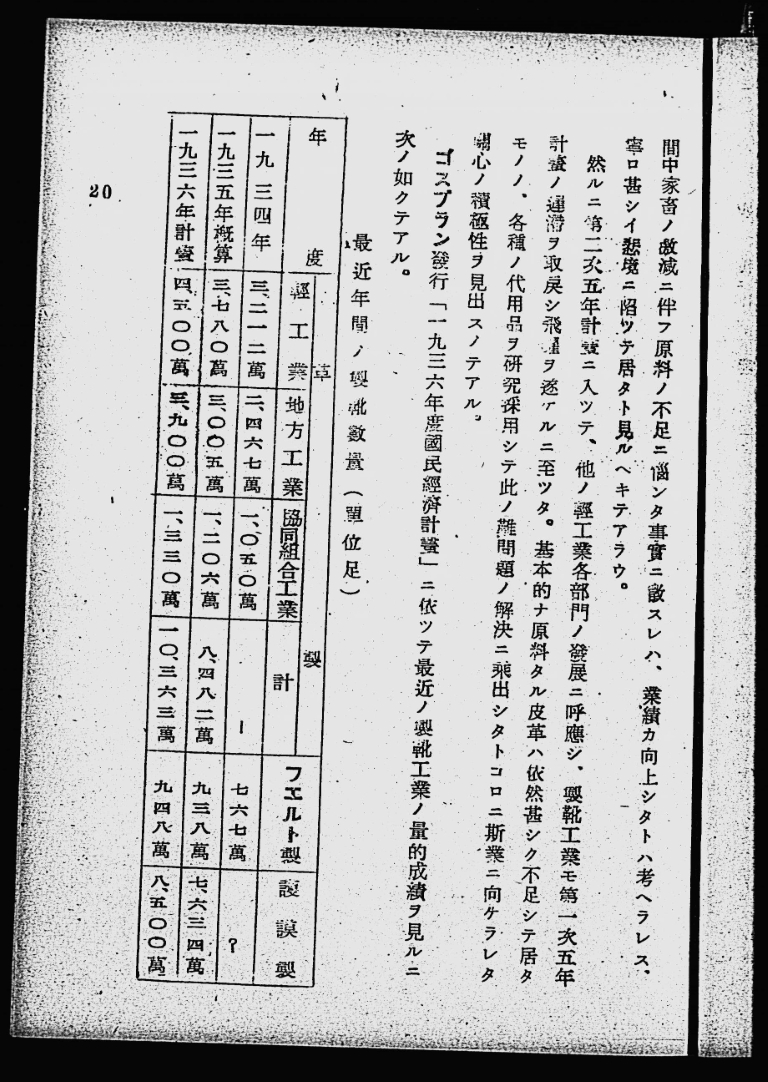 間中家畜ノ激減ニ伴フ原料ノ不足ニ惱ンタ事實ニ徴スレハ、業績カ向上シタトハ考ヘラレス、
寧ロ甚シイ悲境ニ陷ツテ居タト見ルヘキテアラウ。
然ルニ第二次五年計畫ニ入ツテ、他ノ輕工業各部門ノ發展ニ呼應シ、製靴工業モ第一次五年
計畫ノ遲滯ヲ取戾シ飛躍ヲ遂ケルニ至ツタ。基本的ナ原料タル皮革ハ依然甚シク不足シテ居タ
モノノ、各種ノ代用品ヲ研究採用シテ此ノ難問題ノ解決ニ乘出シタトコロニ斯業ニ向ケラレタ
關心ノ積極性ヲ見出スノテアル。
ゴスプラン發行「一九三六年度國民經濟計畫」ニ依ツテ最近ノ製靴工業ノ量的成績ヲ見ルニ
次ノ如クテアル。
最近年間ノ製靴數量(單位足)
年度 革製 フエルト製 護謨製
輕工業 地方工業 協同組合工業 計
一九三四年 三、二一二萬 二、四六七萬 一、〇五〇萬 ー 七六七萬 ?
一九三五年概算 三、七八〇萬 三、〇〇五萬 一、二〇六萬 八、四八二萬 九三八萬 七、六三四萬
一九三六年計畫 四、五〇〇萬 三、九〇〇萬 一、三三〇萬 一〇、三六三萬 九四八萬 八、五〇〇萬
20